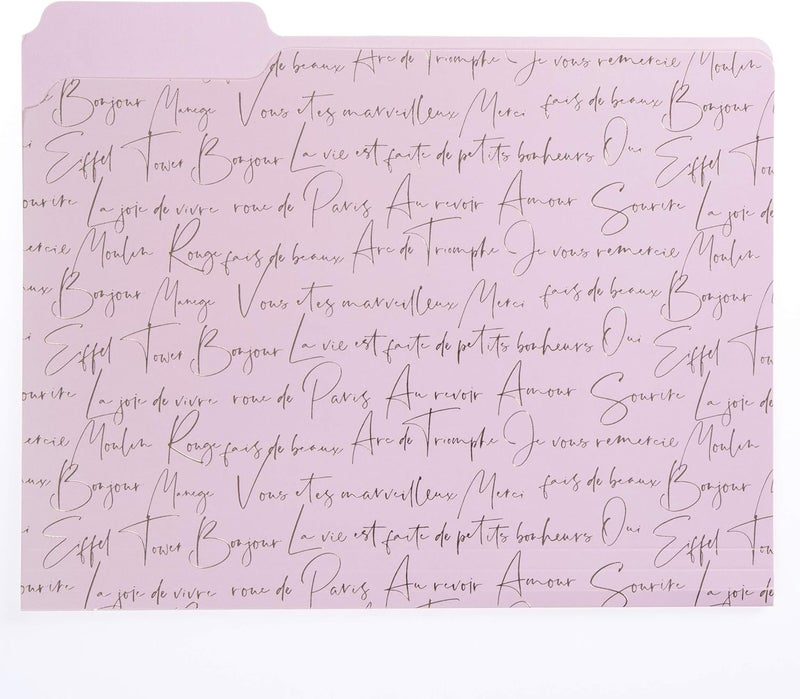 de beaux Arc de Triomphe Je vous remercie Moulin
Bonjour Manege Vous etes marveilleux Merci fais de beaux Bonjour
Eiffel Tower Bonjour La vie est faite de petits bonheurs Oui Eiffel Tow
ourire La joie de vivre roue de Paris Au revoir Amour Sourire La joie de
ercie Moulin Rouge fais de beaux Arc de Triomphe Je vous remercie Moulin
ux Bonjour Manege Vous etes marveilleux Merci fais de beaux Bonjour
i Eiffel Tower Bonjour La vie est faite de petits bonheurs Oui Eiffel Tow
ourire La joie de vivre roue de Paris Au revoir Amour Sourire La joie de
ercie Moulin Rouge fais de beaux Arc de Triomphe Je vous remercie Moulin
ux Bonjour Manege Vous etes marveilleux Merci fais de beaux Bonjour
i Eiffel Tower Bonjour La vie est faite de petits bonheurs Oui Eiffel Tow
ourire La joie de vivre roue de Paris Au revoir Amour Sourire La joie de